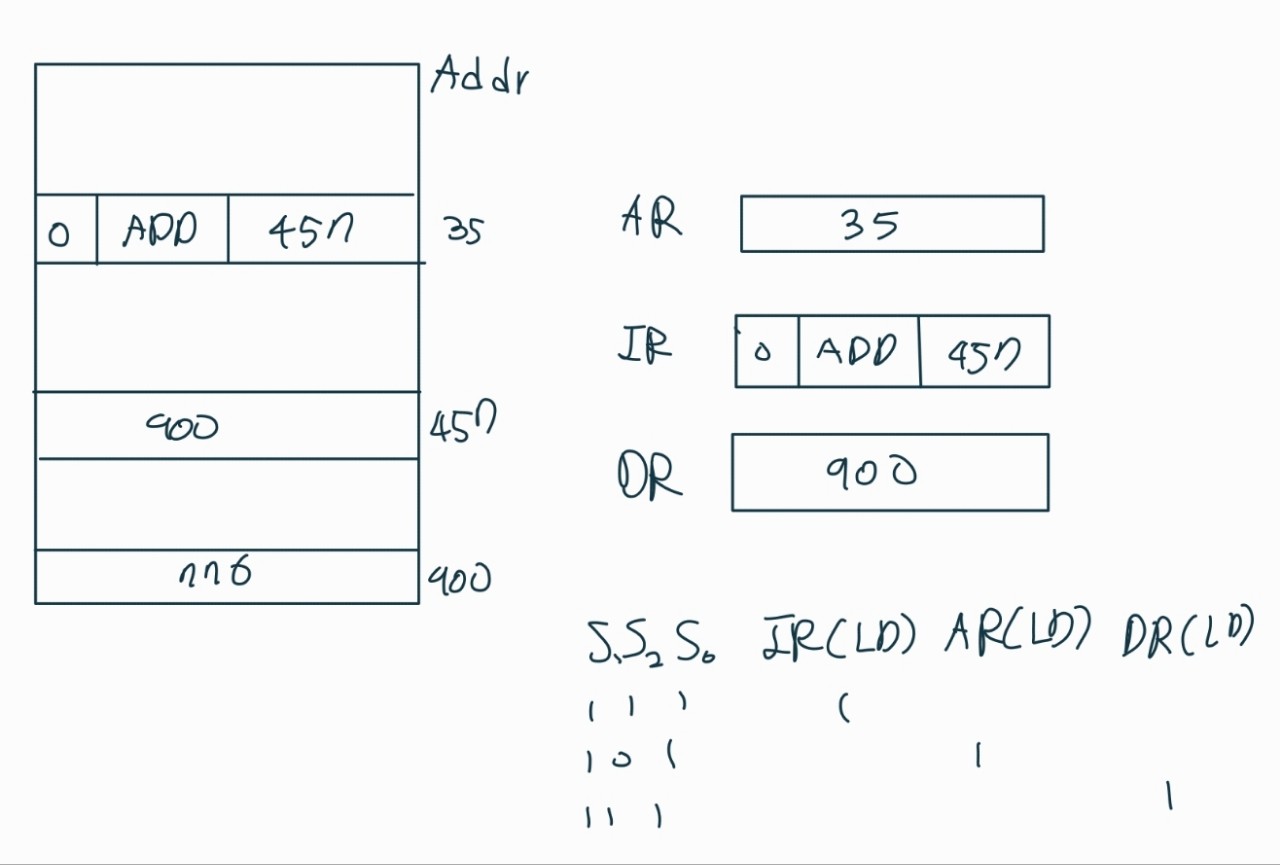 Addr
0 ADD 457 35
900 457
776 900
AR 35
IR 0 ADD 457
DR 900
S₁S₂S₀ IR(LD) AR(LD) DR(LD)
1 1 1 1
1 0 1 1
1 1 1 1